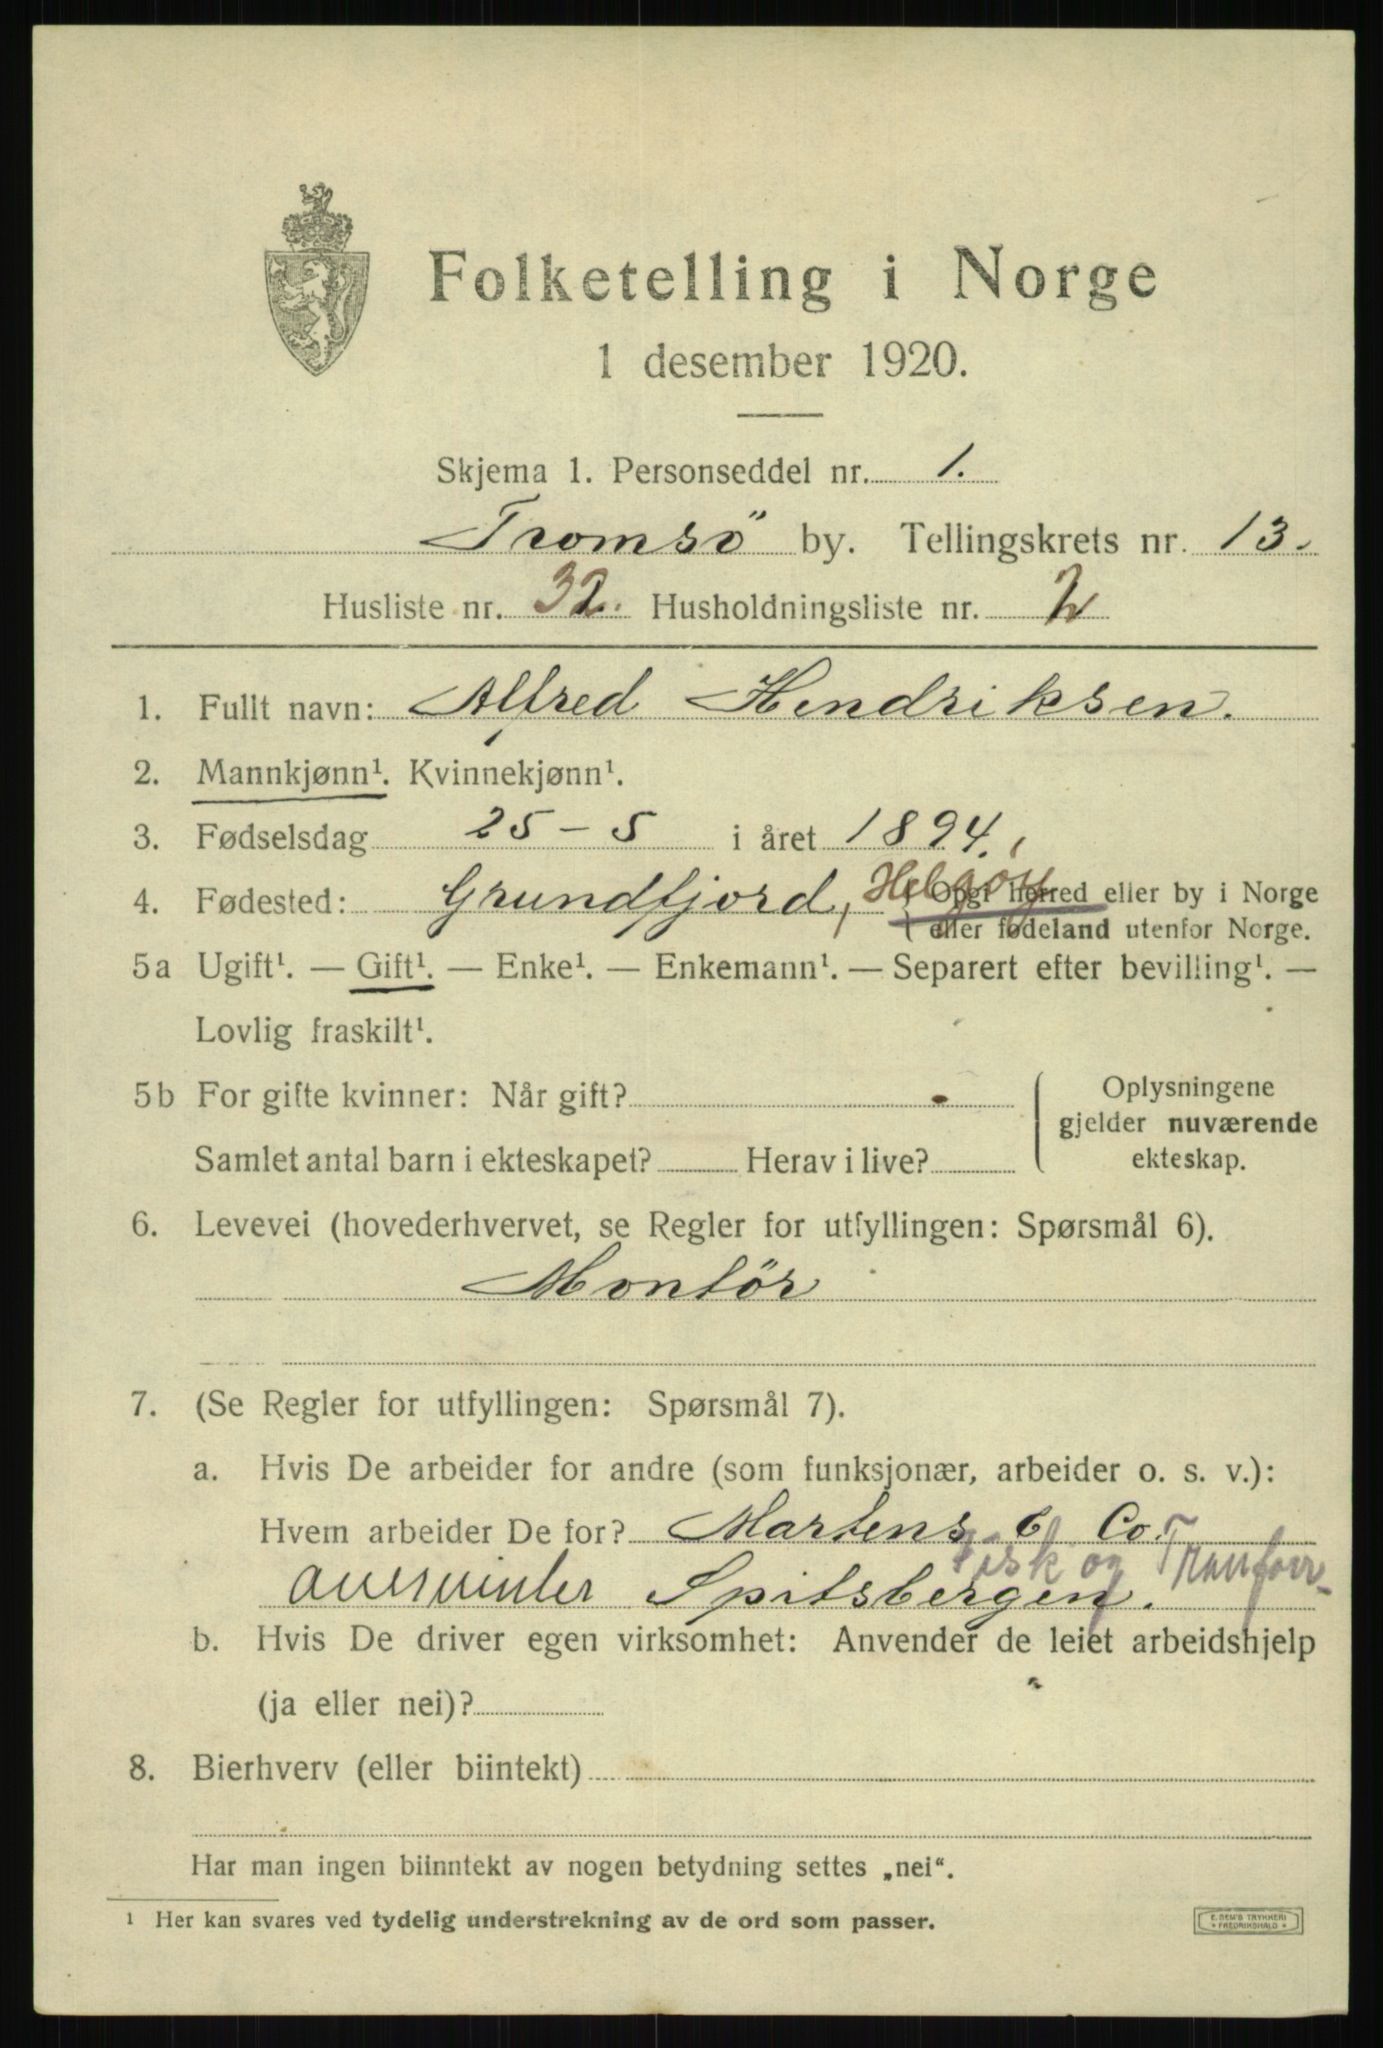 Folketelling i Norge
1 desember 1920.
Skjema 1. Personseddel nr. 1.
Tromsö by. Tellingskrets nr. 13.
Husliste nr. 32. Husholdningsliste nr. 2
1. Fullt navn: Alfred Hendriksen.
2. Mannkjønn¹. Kvinnekjønn¹.
3. Fødselsdag 25-5 i året 1894.
4. Fødested: Grundfjord, Helgöy { Opgi herred eller by i Norge
eller fødeland utenfor Norge.
5a Ugift¹. — Gift¹. — Enke¹. — Enkemann¹. — Separert efter bevilling¹. —
Lovlig fraskilt¹.
5b For gifte kvinner: Når gift?
Samlet antal barn i ekteskapet? Herav i live?
Oplysningene
gjelder nuværende
ekteskap.
6. Levevei (hovederhvervet, se Regler for utfyllingen: Spørsmål 6).
Montör
7. (Se Regler for utfyllingen: Spørsmål 7).
a. Hvis De arbeider for andre (som funksjonær, arbeider o. s. v.):
Hvem arbeider De for? Martens & Co.
Fisk og Tranforr-
Spitsbergen.
b. Hvis De driver egen virksomhet: Anvender de leiet arbeidshjelp
(ja eller nei)?
8. Bierhverv (eller biintekt)
Har man ingen biinntekt av nogen betydning settes „nei“.
¹ Her kan svares ved tydelig understrekning av de ord som passer.
E. SEM'S TRYKKERI
* FREDRIKSHALD *